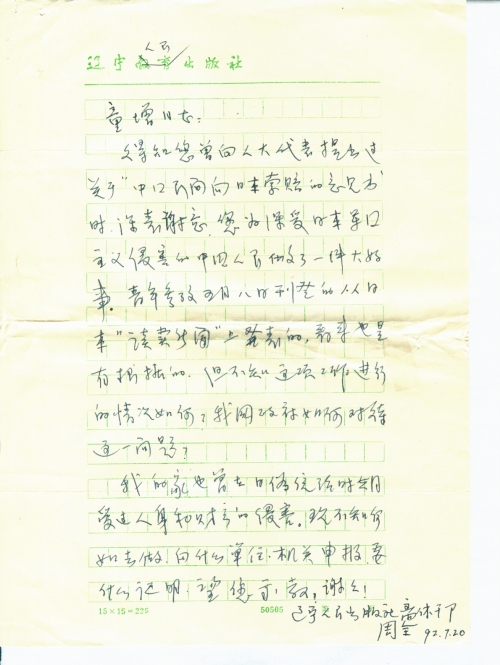 人民
辽宁 出版社
童增同志:
获知您曾向人大代表提出过
关于"中国民间向日本索赔的意见书"
时,深表谢意,您为深受日本军国
主义侵害的中国人民做了一件大好
事。 八日刊登的从日
本"读卖新闻"上发表的,看来也是
有根据的。但不知这项工作进行
的情况如何?我国政府如何对待
这一问题?
我的家也曾在日伪统治时期
受过人身和财产的侵害。现不知何
如去做,向什么单位、机关申报,要
什么证明,望您示教,谢谢!
辽宁人民出版社离休干部
周全 92.7.20
15×15=225
50505